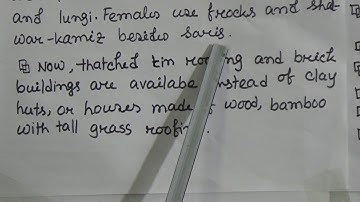 and lungi. Females use frocks and shal
war-kamiz besides saris.
⊕ Now, thatched tin roofing and brick
buildings are availabe instead of clay
huts, or houses made of wood, bamboo
with tall grass roofing.